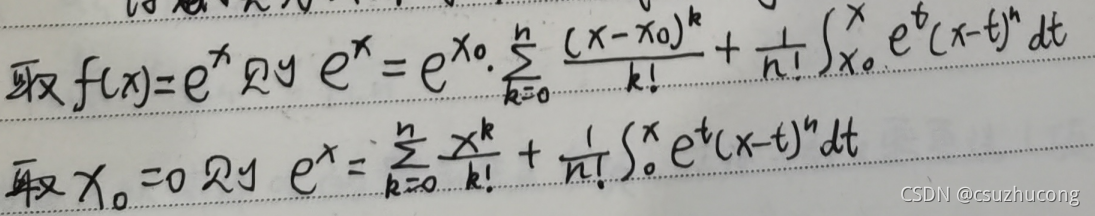 取 f(x)=e^x 则 e^x = e^{x_0}·∑_{k=0}^{n} (x-x_0)^k/k! + 1/n! ∫_{x_0}^{x} e^t(x-t)^n dt
取 x_0=0 则 e^x = ∑_{k=0}^{n} x^k/k! + 1/n! ∫_0^x e^t(x-t)^n dt
CSDN @csuzhucong